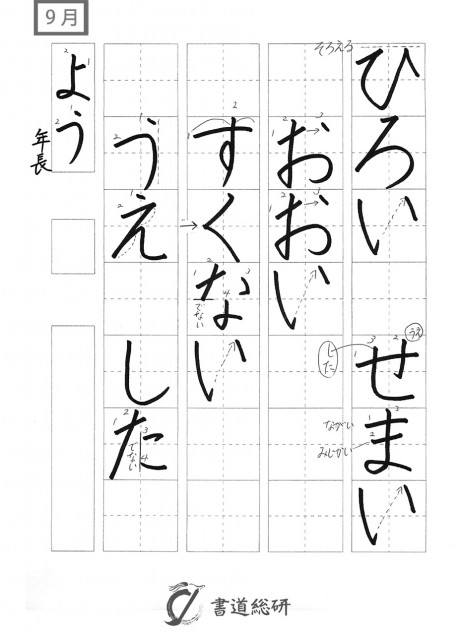 9月
ひろい せまい
そろえる
うえ
した
ながい
みじかい
おおい
すくない
でない
うえ した
でない
よう
年長
書道総研